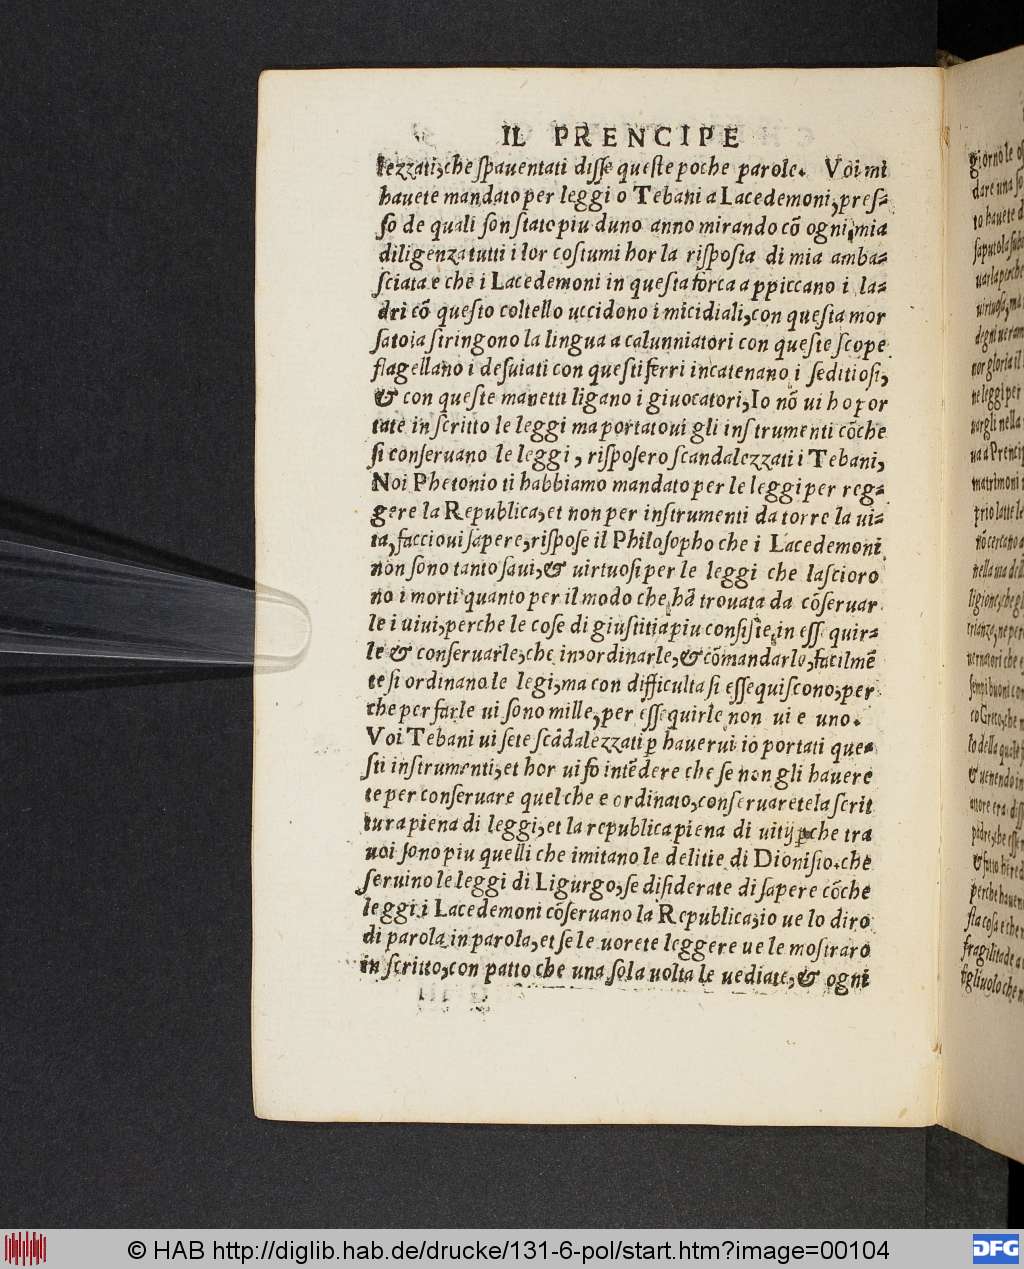 IL PRENCIPE
lezzati, che ſpauentati diſſe queſte poche parole. Voi mi
hauete mandato per leggi o Tebani a Lacedemoni, preſ-
ſo de quali ſon ſtato piu duno anno mirando cõ ogni mia
diligenza tutti i lor coſtumi hor la riſpoſta di mia amba-
ſciata e che i Lacedemoni in queſta forca appiccano i la-
dri cõ queſto coltello uccidono i micidiali, con queſta mor
ſatoia ſtringono la lingua a calunniatori con queſte ſcope
flagellano i deſuiati con queſti ferri incatenano i ſeditioſi,
& con queſte manetti ligano i giuocatori, Io nõ ui ho por
tate in ſcritto le leggi ma portatoui gli inſtrumenti cõche
ſi conſeruano le leggi, riſpoſero ſcandalezzati i Tebani,
Noi Phetonio ti habbiamo mandato per le leggi per reg-
gere la Republica, et non per inſtrumenti da torre la ui-
ta, faccioui ſapere, riſpoſe il Philoſopho che i Lacedemoni
non ſono tanto ſaui, & uirtuoſi per le leggi che laſcioro
no i morti quanto per il modo che hã trouata da cõſeruar
le i uiui, perche le coſe di giuſtitia piu conſiſte in eſſequir-
le & conſeruarle, che in ordinarle, & cõmandarle, facilmẽ
te ſi ordinano le legi, ma con difficulta ſi eſſequiſcono, per
che per farle ui ſono mille, per eſſequirle non ui e uno.
Voi Tebani ui ſete ſcãdalezzati ꝑ hauerui io portati que-
ſti inſtrumenti, et hor ui fo intẽdere che ſe non gli hauere
te per conſeruare quel che e ordinato, conſeruarete la ſcrit
tura piena di leggi, et la republica piena di uitij ꝑche tra
uoi ſono piu quelli che imitano le delitie di Dioniſio. che
ſeruino le leggi di Ligurgo, ſe diſiderate di ſapere cõche
leggi i Lacedemoni cõſeruano la Republica, io ue lo diro
di parola in parola, et ſe le uorete leggere ue le moſtraro
in ſcritto, con patto che una ſola uolta le uediate, & ogni
giorno le
dare una
to hauete
© HAB http://diglib.hab.de/drucke/131-6-pol/start.htm?image=00104
DFG